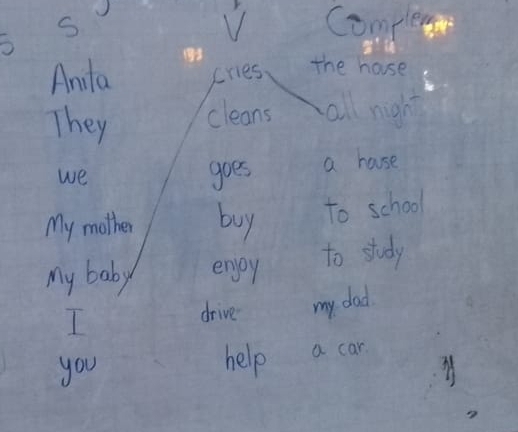 S V Complem
Anita cries the house
They cleans all night
we goes a house
My mother buy to school
My baby enjoy to study
I drive my dad.
you help a car.